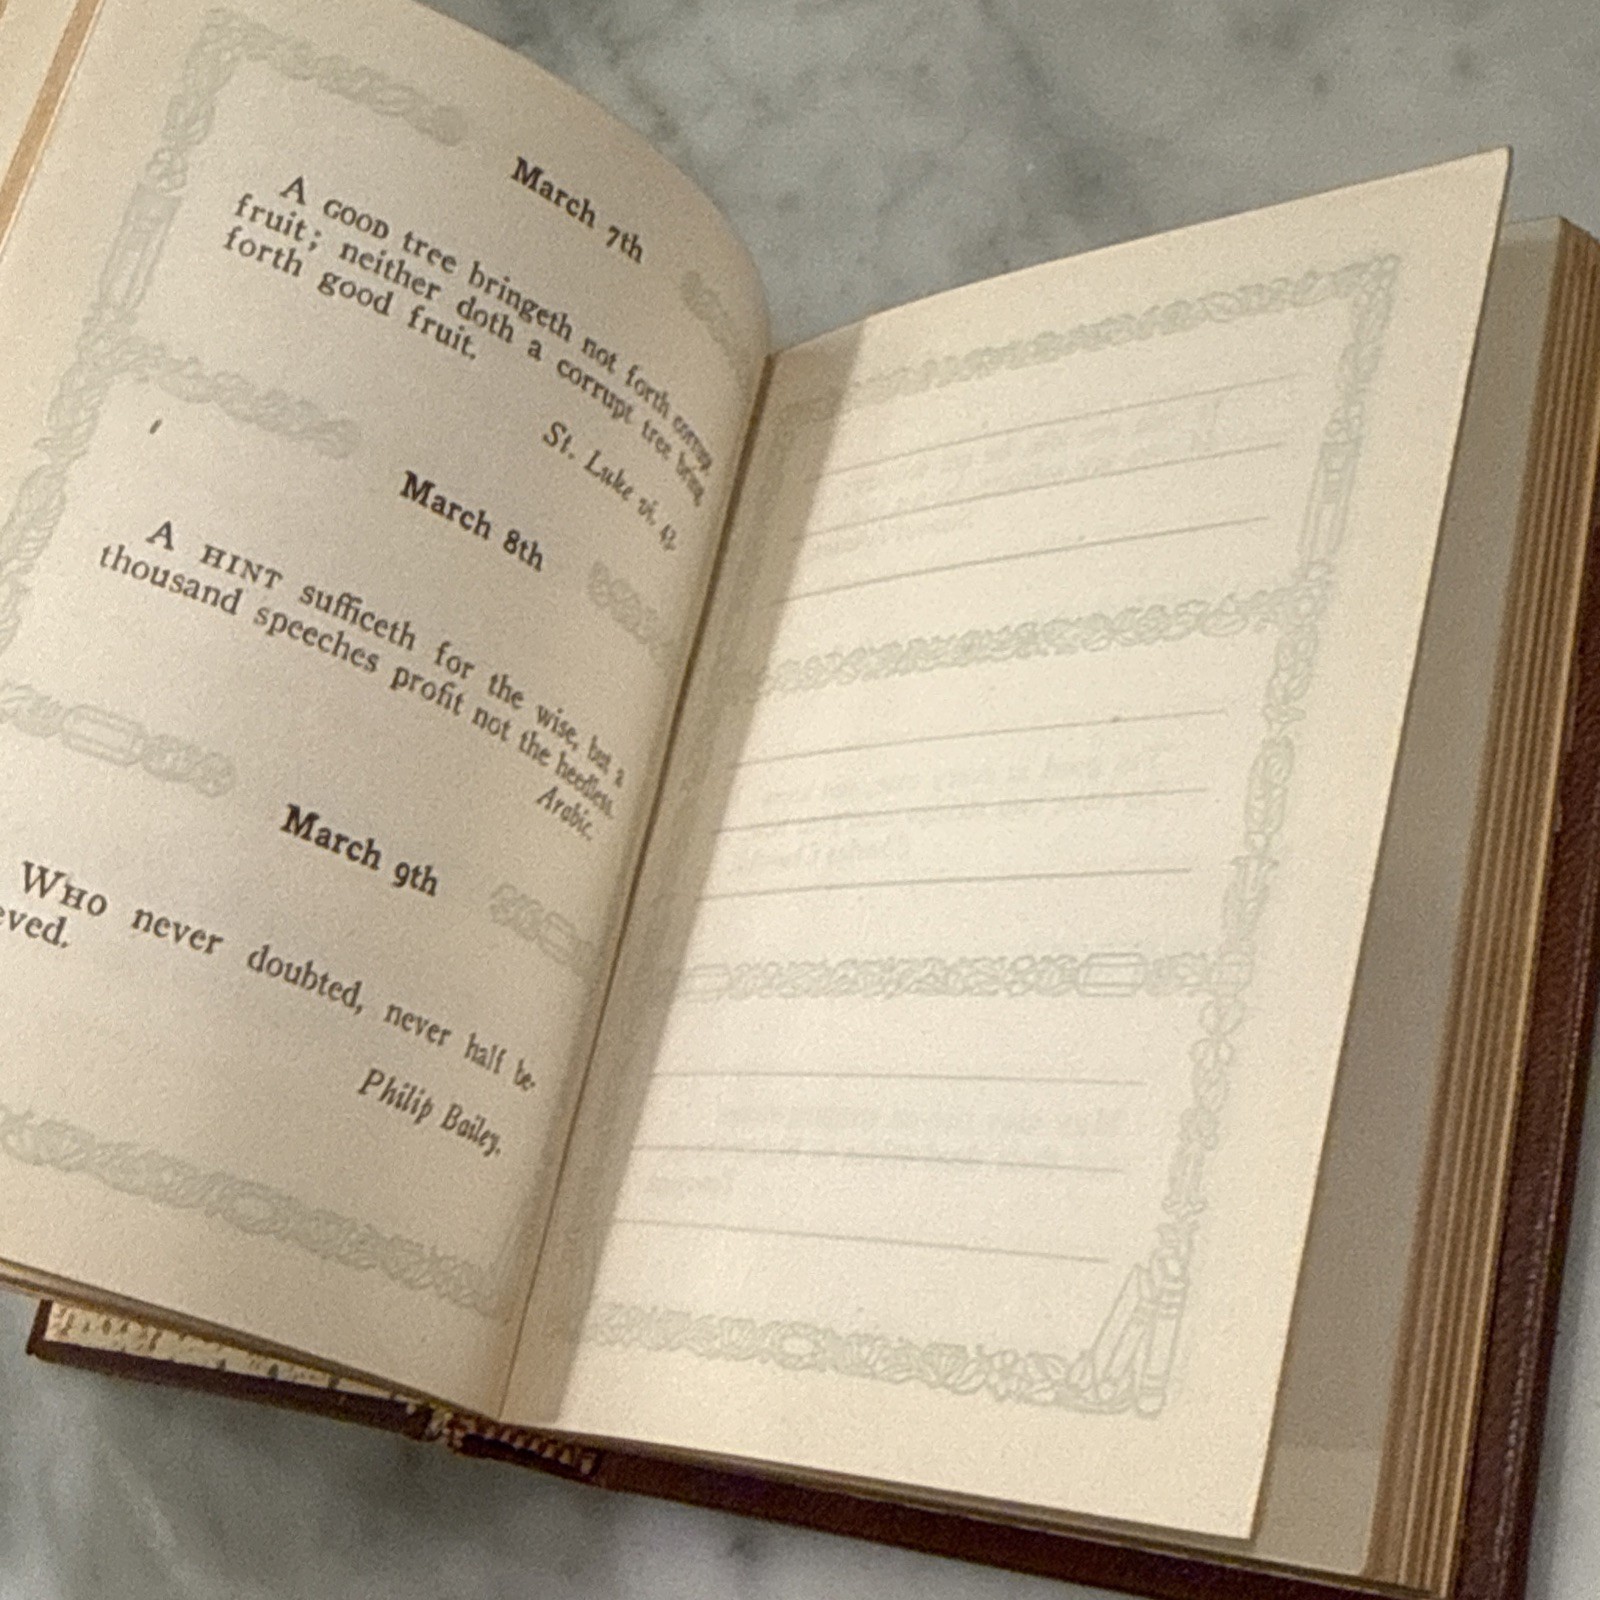 March 7th
A GOOD tree bringeth not forth corrupt
fruit; neither doth a corrupt tree bring
forth good fruit.
St. Luke vi. 43.
March 8th
A HINT sufficeth for the wise, but a
thousand speeches profit not the heedless.
Arabic.
March 9th
WHO never doubted, never half be-
eved.
Philip Bailey.